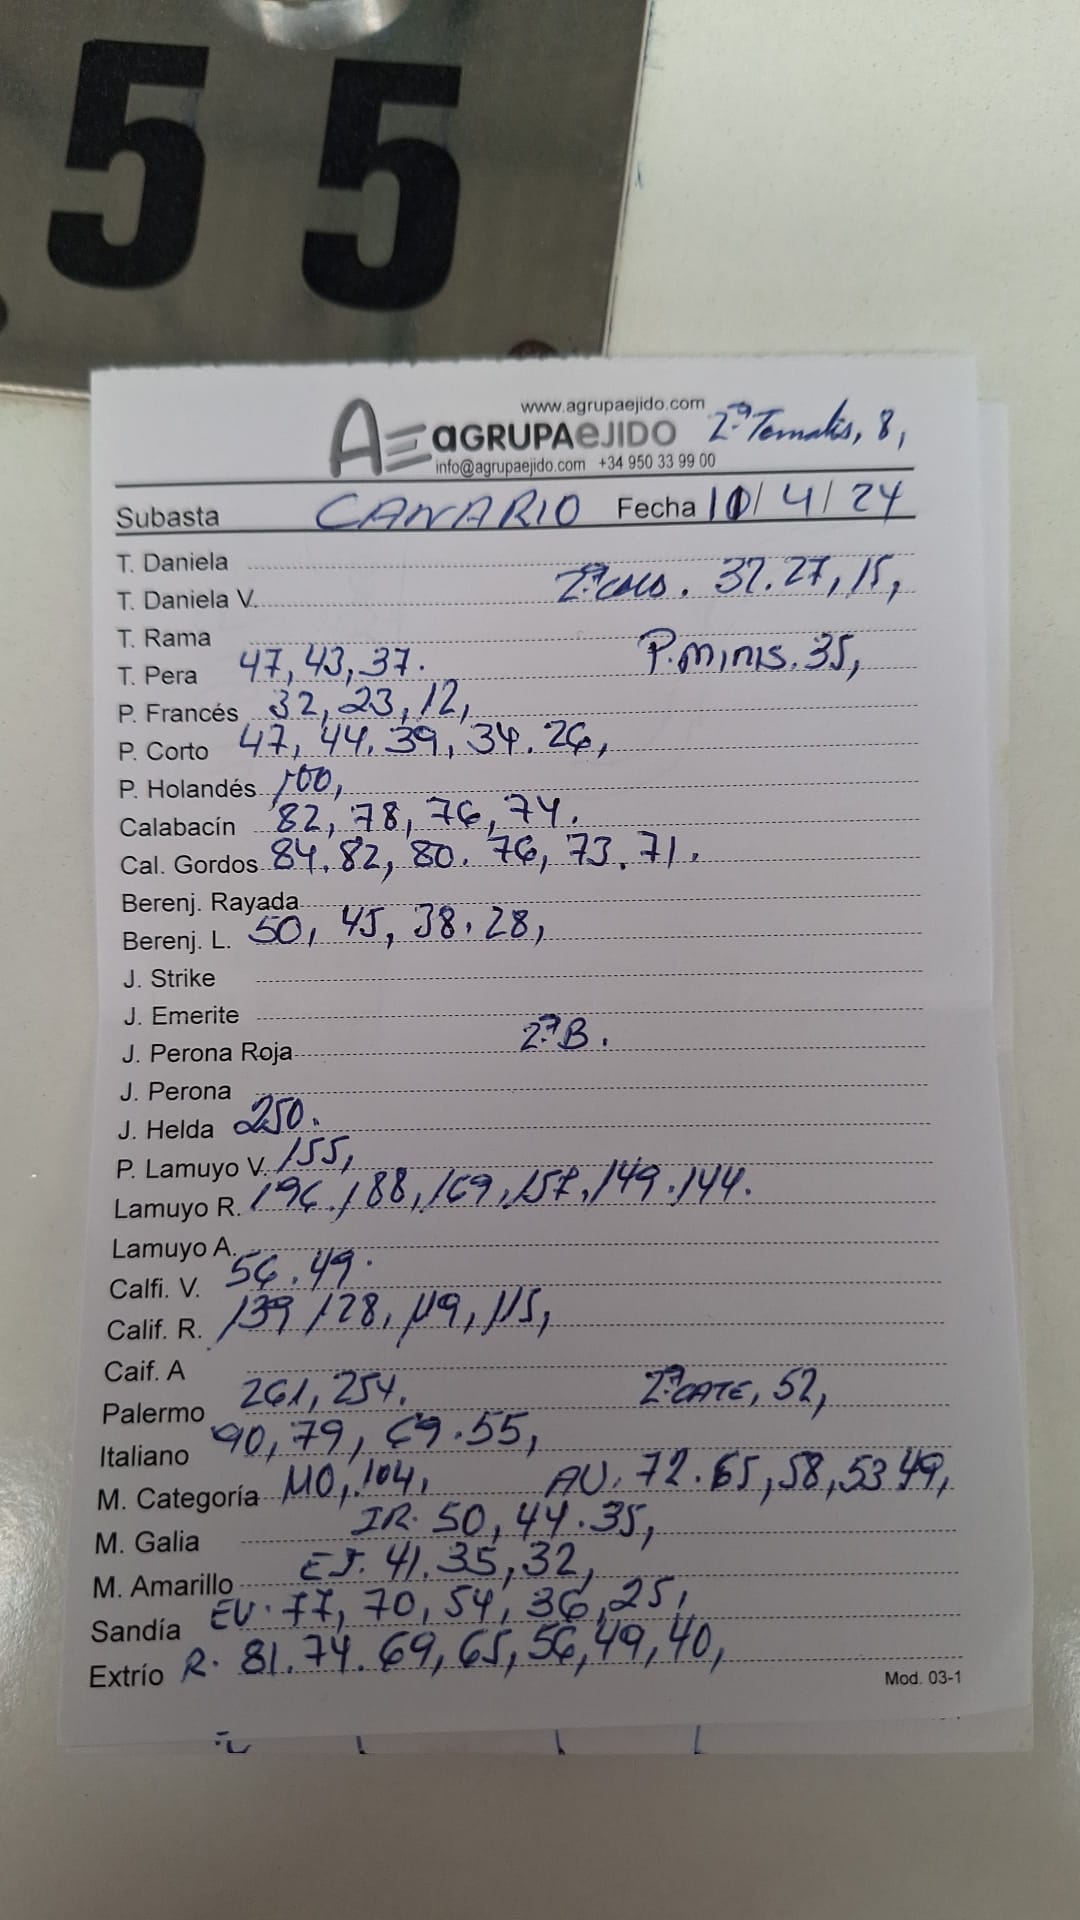 55
www.agrupaejido.com
AGRUPAEJIDO 2ª Tomates, 8,
info@agrupaejido.com +34 950 33 99 00
Subasta CANARIO Fecha 10/4/24
T. Daniela
T. Daniela V. 2ª CALO. 37.27, 15,
T. Rama
T. Pera 47, 43, 37. P. MINIS. 35,
P. Francés 32, 23, 12,
P. Corto 47, 44. 39, 34. 26,
P. Holandés 100,
Calabacín 82, 78, 76, 74.
Cal. Gordos 84. 82, 80. 76, 73. 71.
Berenj. Rayada
Berenj. L. 50, 45, 38. 28,
J. Strike
J. Emerite
J. Perona Roja 2ª B.
J. Perona
J. Helda 250.
P. Lamuyo V. 155,
Lamuyo R. 196. 188, 169, 157, 149. 144.
Lamuyo A.
Calfi. V. 56. 49.
Calif. R. 139 128, 119, 115,
Caif. A
Palermo 261, 254. 2ª CATE, 52,
Italiano 90, 79, 69. 55,
M. Categoría 110, 104, AU. 72. 65, 58, 53 49,
M. Galia IR. 50, 44. 35,
M. Amarillo EJ. 41. 35, 32,
Sandía EU. 77, 70, 54, 36, 25,
Extrío R. 81. 74. 69, 65, 56, 49, 40,
Mod. 03-1